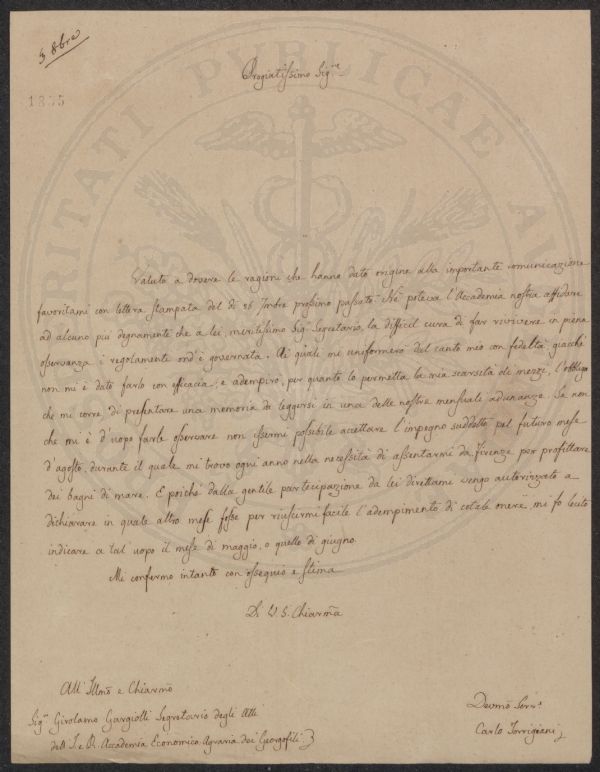 3 8bre
Pregiatissimo Sigre
1835
Valuto a dovere le ragioni che hanno dato origine alla importante comunicazione
favoritami con lettera stampata del dì 26 7mbre prossimo passato. Nè poteva l'Accademia nostra affidare
ad alcuno più degnamente che a lei, meritissimo Sig. Segretario, la difficil cura di far rivivere in piena
osservanza i regolamenti ond'è governata. Ai quali mi uniformerò dal canto mio con fedeltà, giacchè
non mi è dato farlo con efficacia; e adempirò, per quanto lo permetta la mia scarsità di mezzi, l'obbligo
che mi corre di presentare una memoria da leggersi in una delle nostre mensuali adunanze. Se non
che mi è d'uopo farle osservare non essermi possibile accettare l'impegno suddetto pel futuro mese
d'agosto, durante il quale mi trovo ogni anno nella necessità di assentarmi da Firenze per profittare
dei bagni di mare. E poichè dalla gentile partecipazione da lei direttami vengo autorizzato a
dichiarare in quale altro mese fosse per riuscirmi facile l'adempimento di cotale onere, mi fo lecito
indicare a tal uopo il mese di maggio, o quello di giugno.
Mi confermo intanto con ossequio e stima
Di V. S. Chiarma
All' Illmo e Chiarmo
Sigr Girolamo Gargiolli Segretario degli Atti
dell' I. e R. Accademia Economico Agraria dei Georgofili
Devmo Servo
Carlo Torrigiani
RITATI PUBLICAE AU